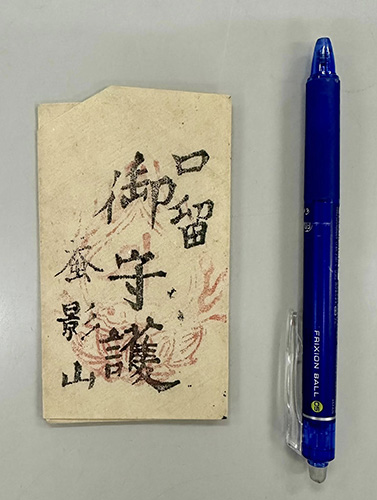 口留
御守護
蚕影山
FRIXION BALL